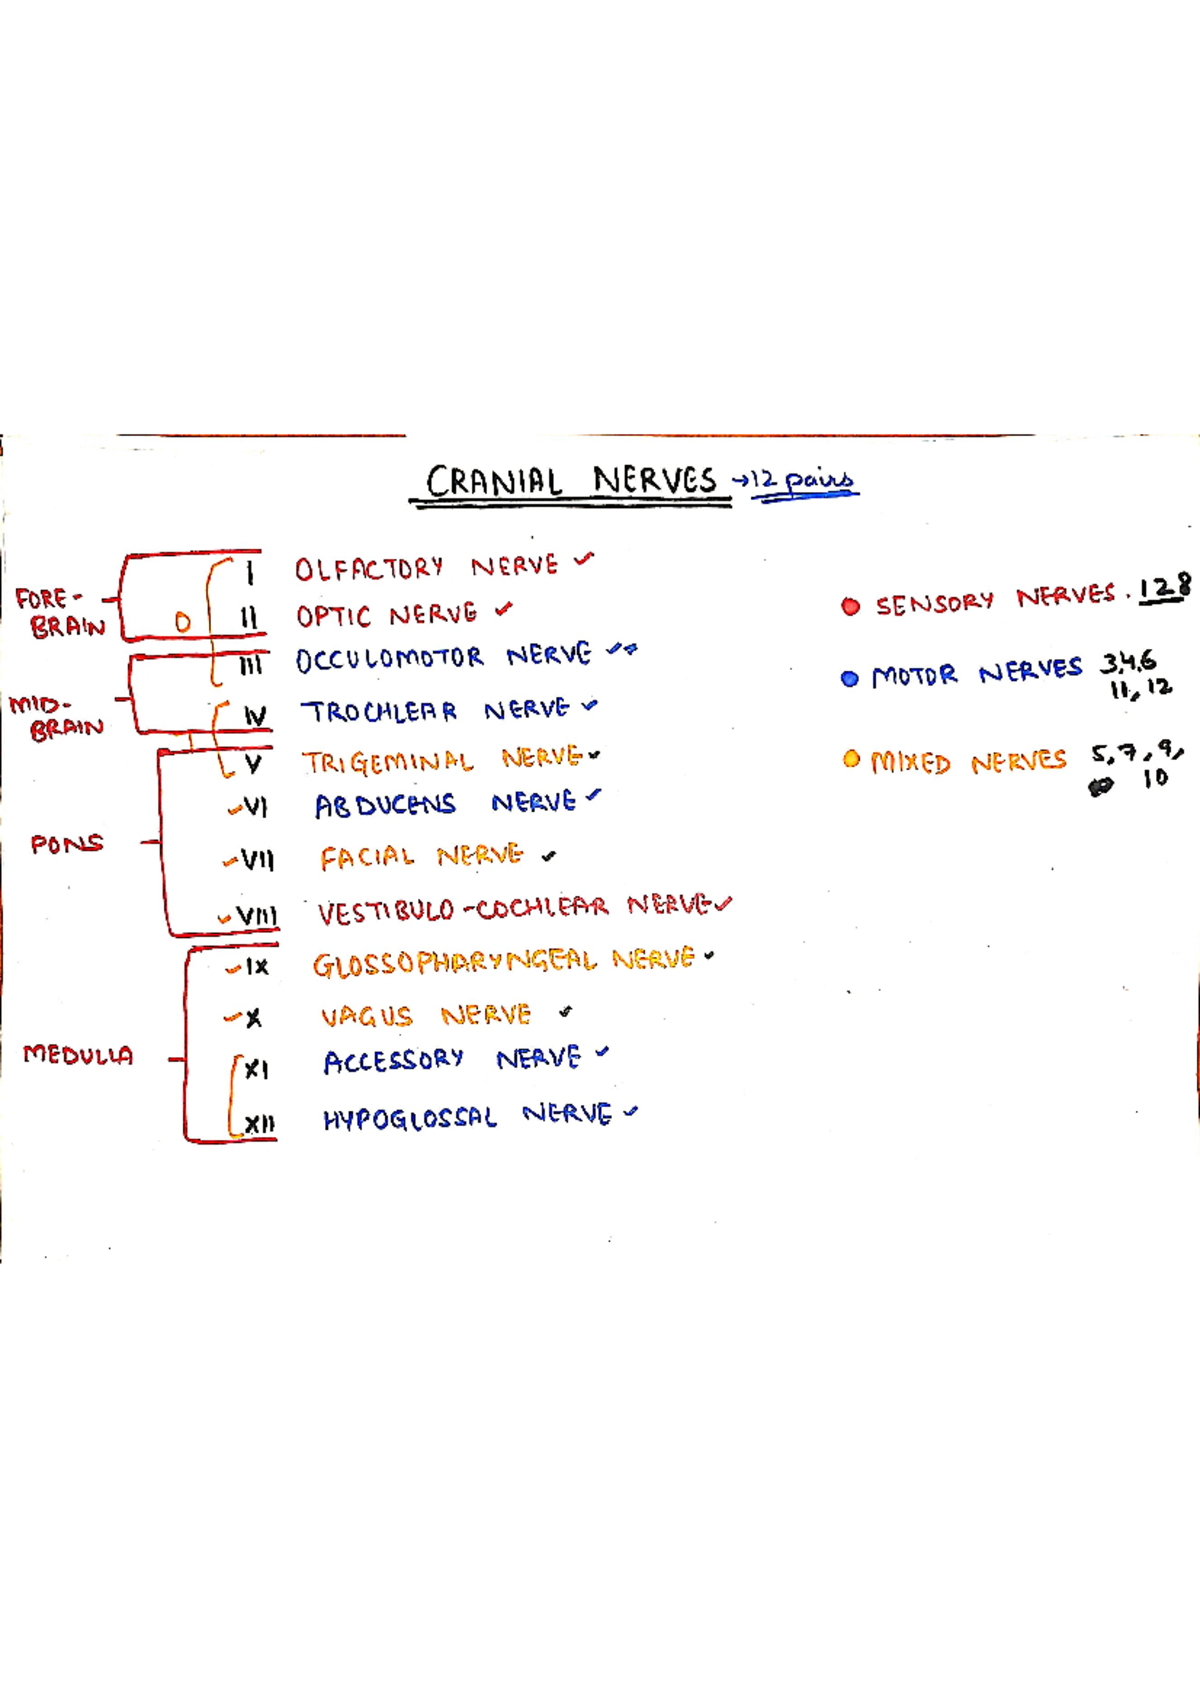 CRANIAL NERVES →12 pairs
FORE-
BRAIN
I OLFACTORY NERVE ✓
O II OPTIC NERVE ✓
MID-
BRAIN
III OCCULOMOTOR NERVE ✓
IV TROCHLEAR NERVE ✓
PONS
V TRIGEMINAL NERVE ✓
✓VI ABDUCENS NERVE ✓
✓VII FACIAL NERVE ✓
✓VIII VESTIBULO-COCHLEAR NERVE ✓
MEDULLA
✓IX GLOSSOPHARYNGEAL NERVE ✓
✓X VAGUS NERVE ✓
XI ACCESSORY NERVE ✓
XII HYPOGLOSSAL NERVE ✓
SENSORY NERVES. 128
MOTOR NERVES 3,4,6
11, 12
MIXED NERVES 5, 7, 9,
10